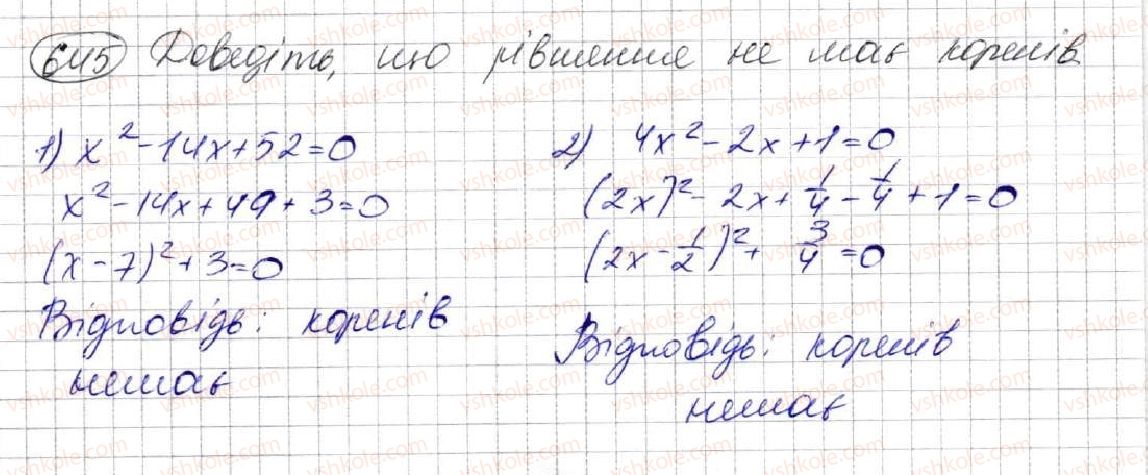 645 Доведіть, що рівняння не має коренів
1) x² - 14x + 52 = 0
x² - 14x + 49 + 3 = 0
(x - 7)² + 3 = 0
Відповідь: коренів
немає
2) 4x² - 2x + 1 = 0
(2x)² - 2x + 1/4 - 1/4 + 1 = 0
(2x - 1/2)² + 3/4 = 0
Відповідь: коренів
немає
vshkole.com